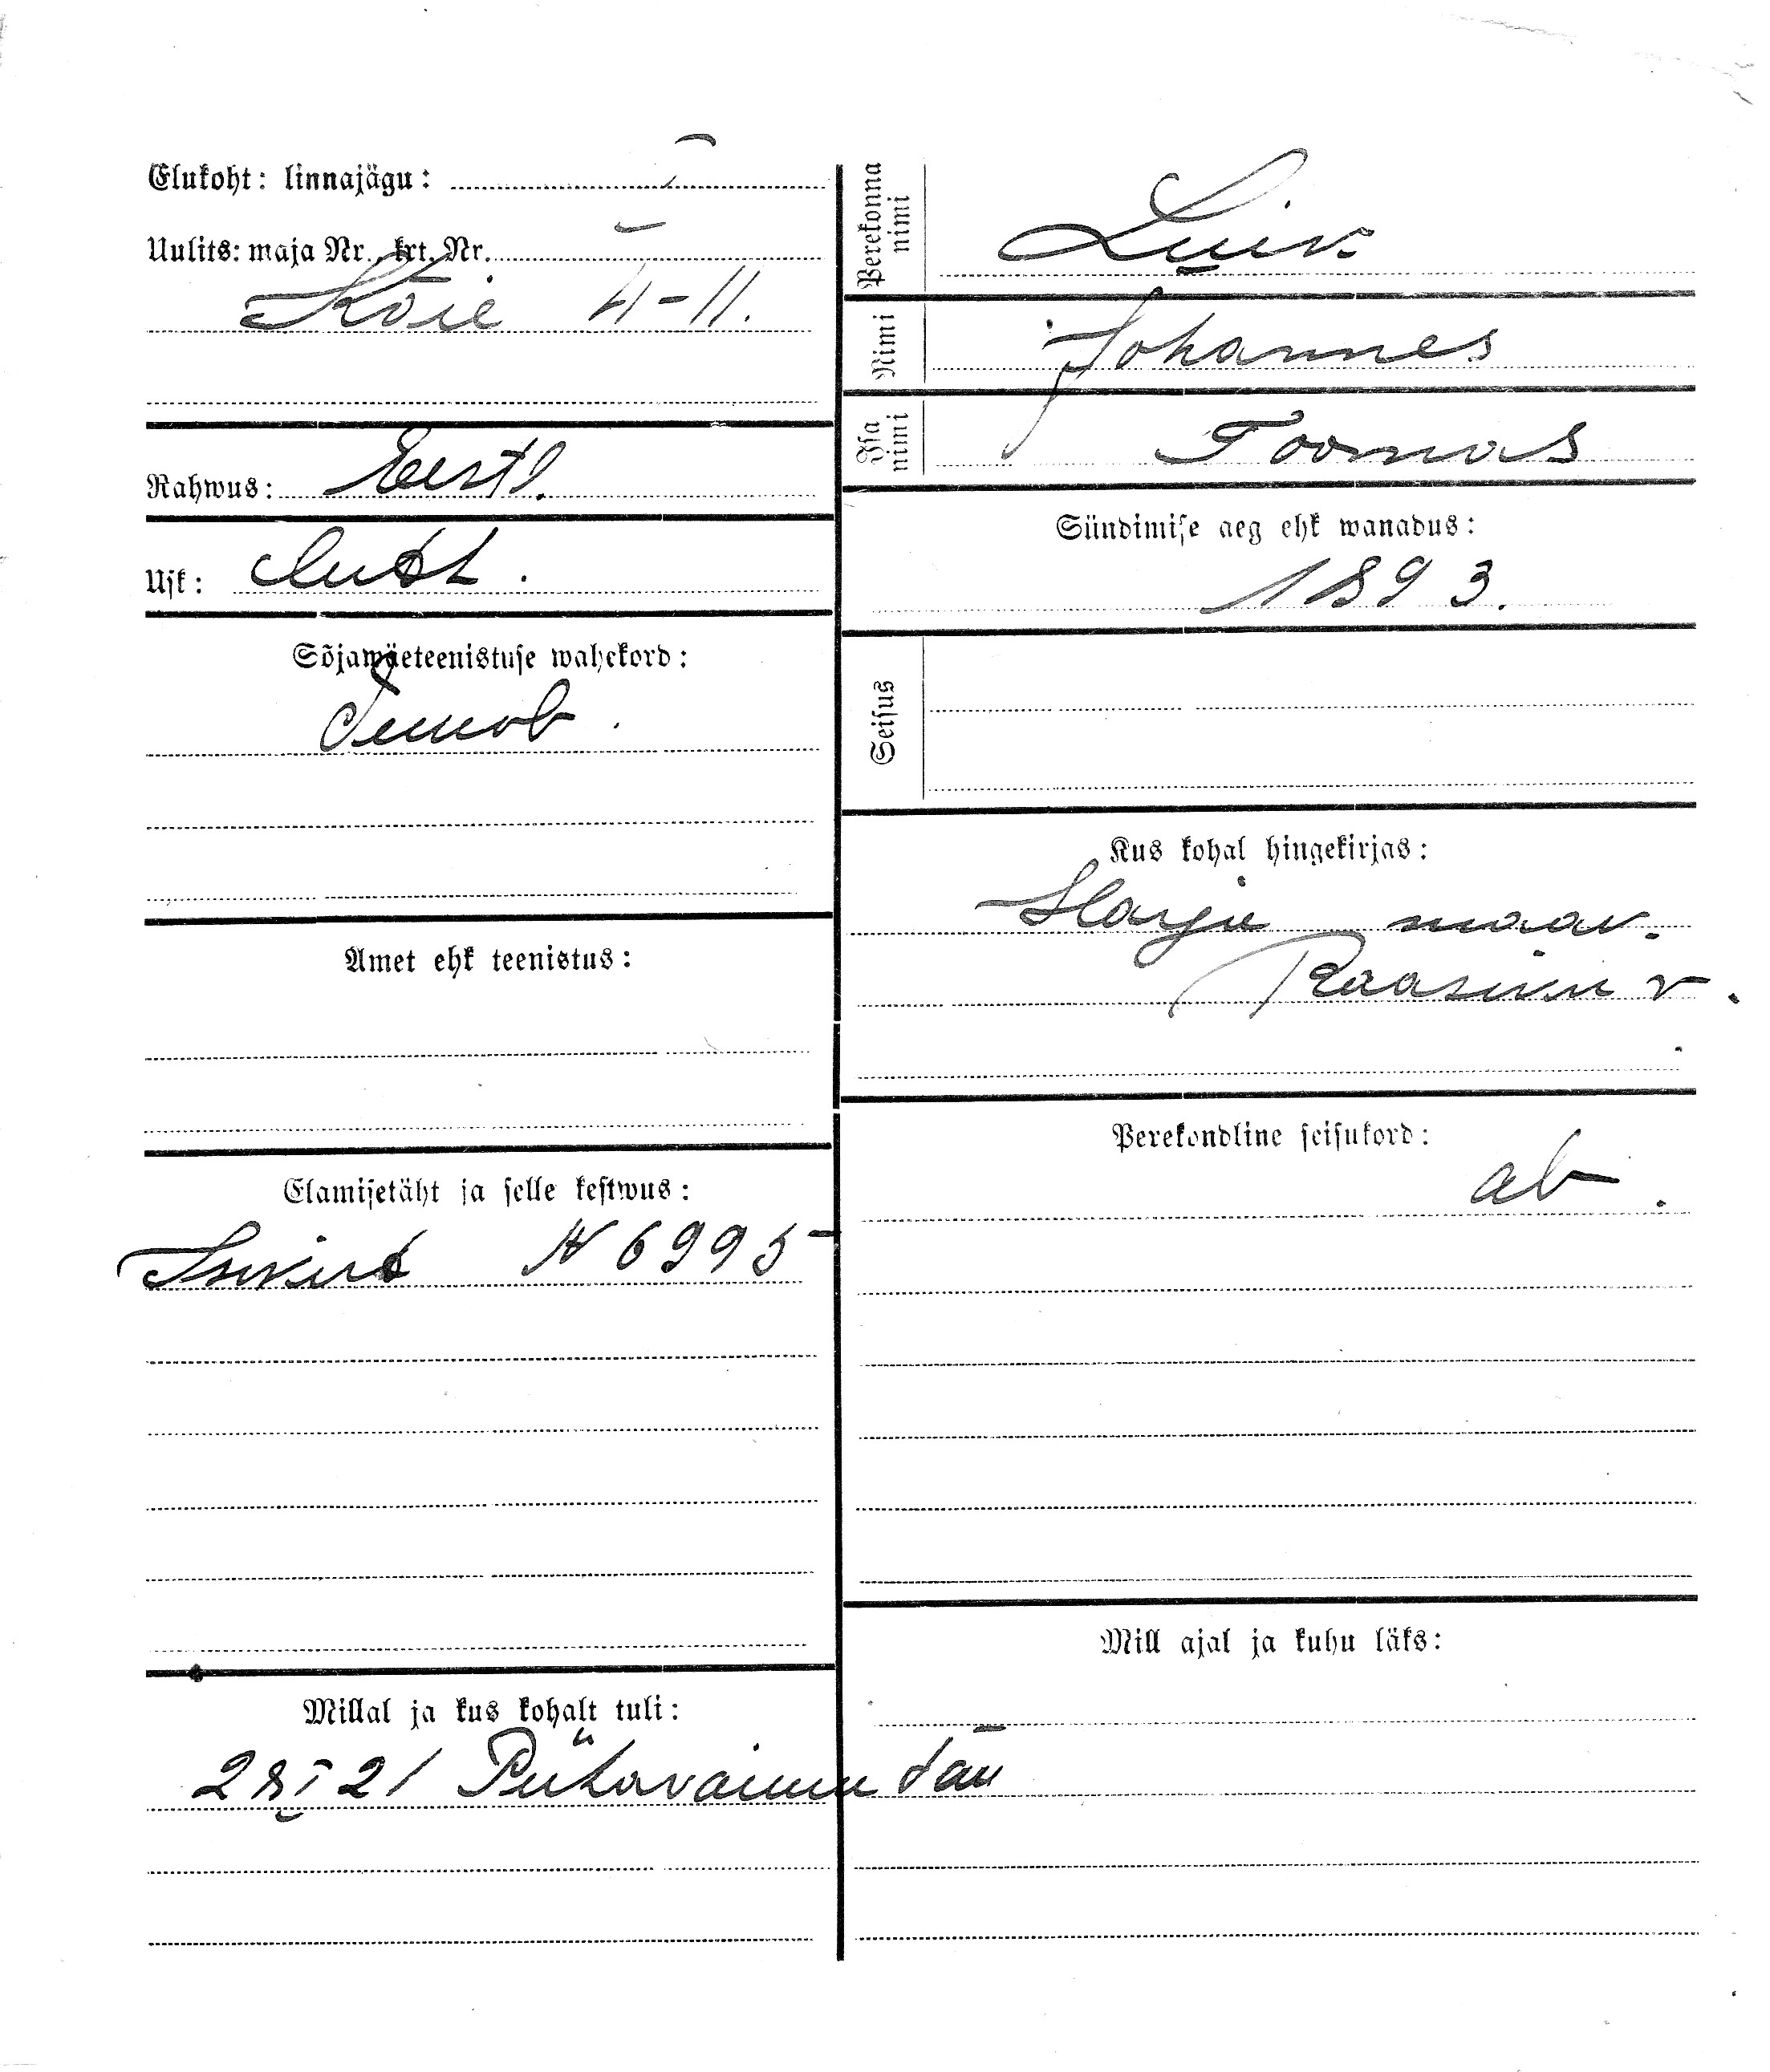 Elukoht: linnajägu: I
Uulits: maja Nr., krt. Nr.
Köie 4-11.
Rahwus: Eestl.
Usk: Luth.
Sõjawäeteenistuse wahekord:
Demob.
Amet ehk teenistus:
Elamisetäht ja selle kestwus:
Isikut N 6995
Millal ja kus kohalt tuli:
2 XI 21 Pühavaimu tän
Perekonna nimi Luik
Nimi Johannes
Isa nimi Toomas
Sündimise aeg ehk wanadus:
1893.
Seisus
Kus kohal hingekirjas:
Harju maav.
Raasiku v.
Perekondline seisukord:
ab.
Mill ajal ja kuhu läks: